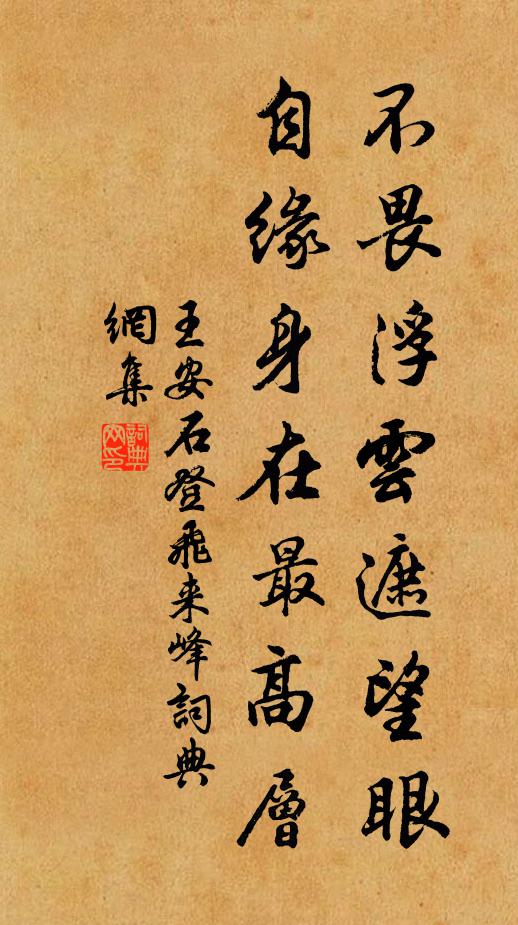 不畏浮雲遮望眼
自緣身在最高層
王安石登飛来峰詞典
網集
詞典
网印